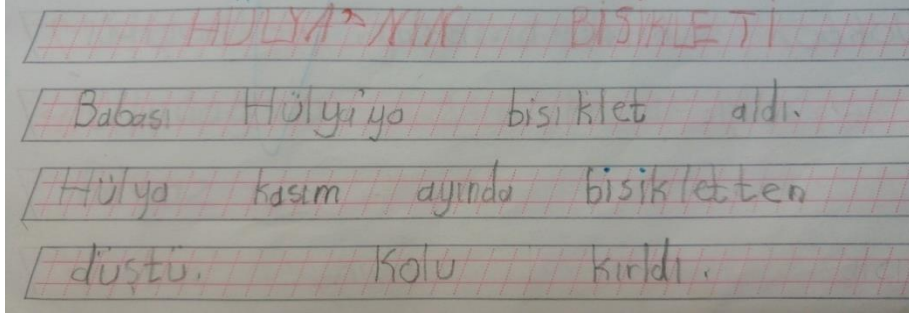 HÜLYA'NIN BİSİKLETİ
Babası Hülya'ya bisiklet aldı.
Hülya kasım ayında bisikletten
düştü. Kolu kırldı.